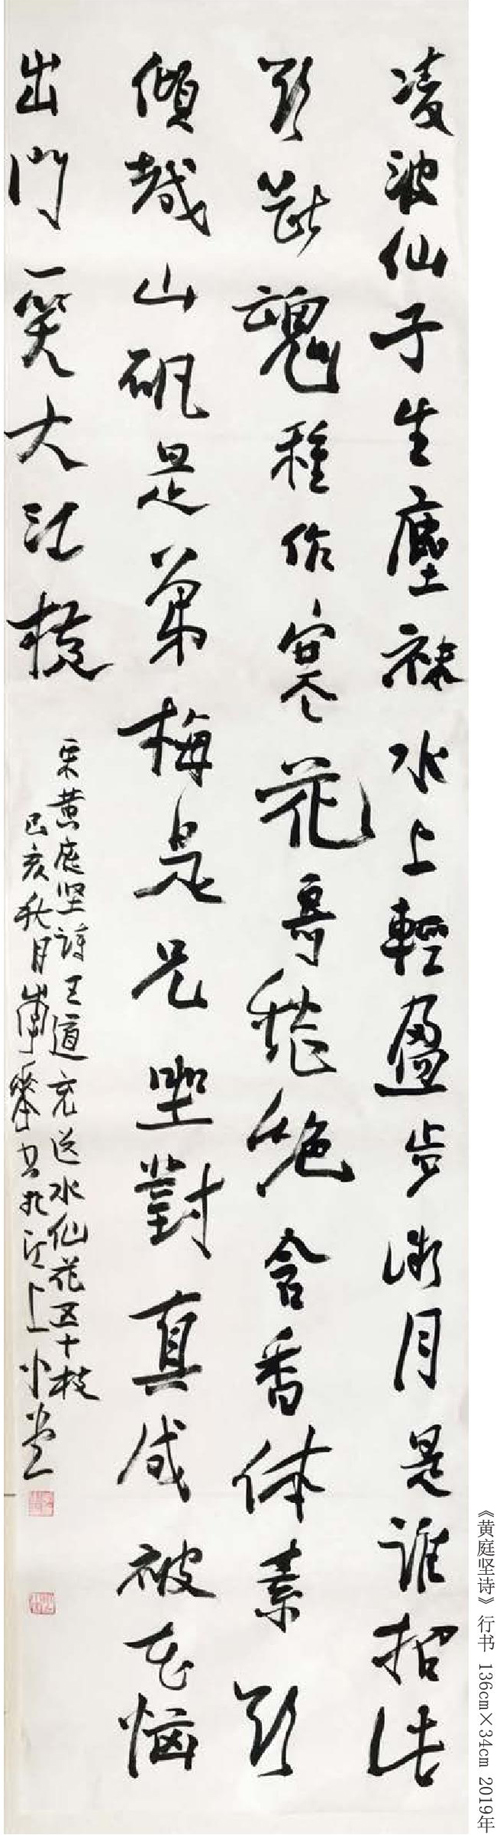 凌波仙子生塵襪水上輕盈步微月是誰招此
魂種作寒花寄愁絕含香体素欲
傾城山礬是弟梅是兄坐對真成被花惱
出門一笑大江橫
宋黄庭坚诗王道充送水仙花五十枝
己亥秋月书於江上小堂
《黄庭坚诗》 行书 136cm×34cm 2019年